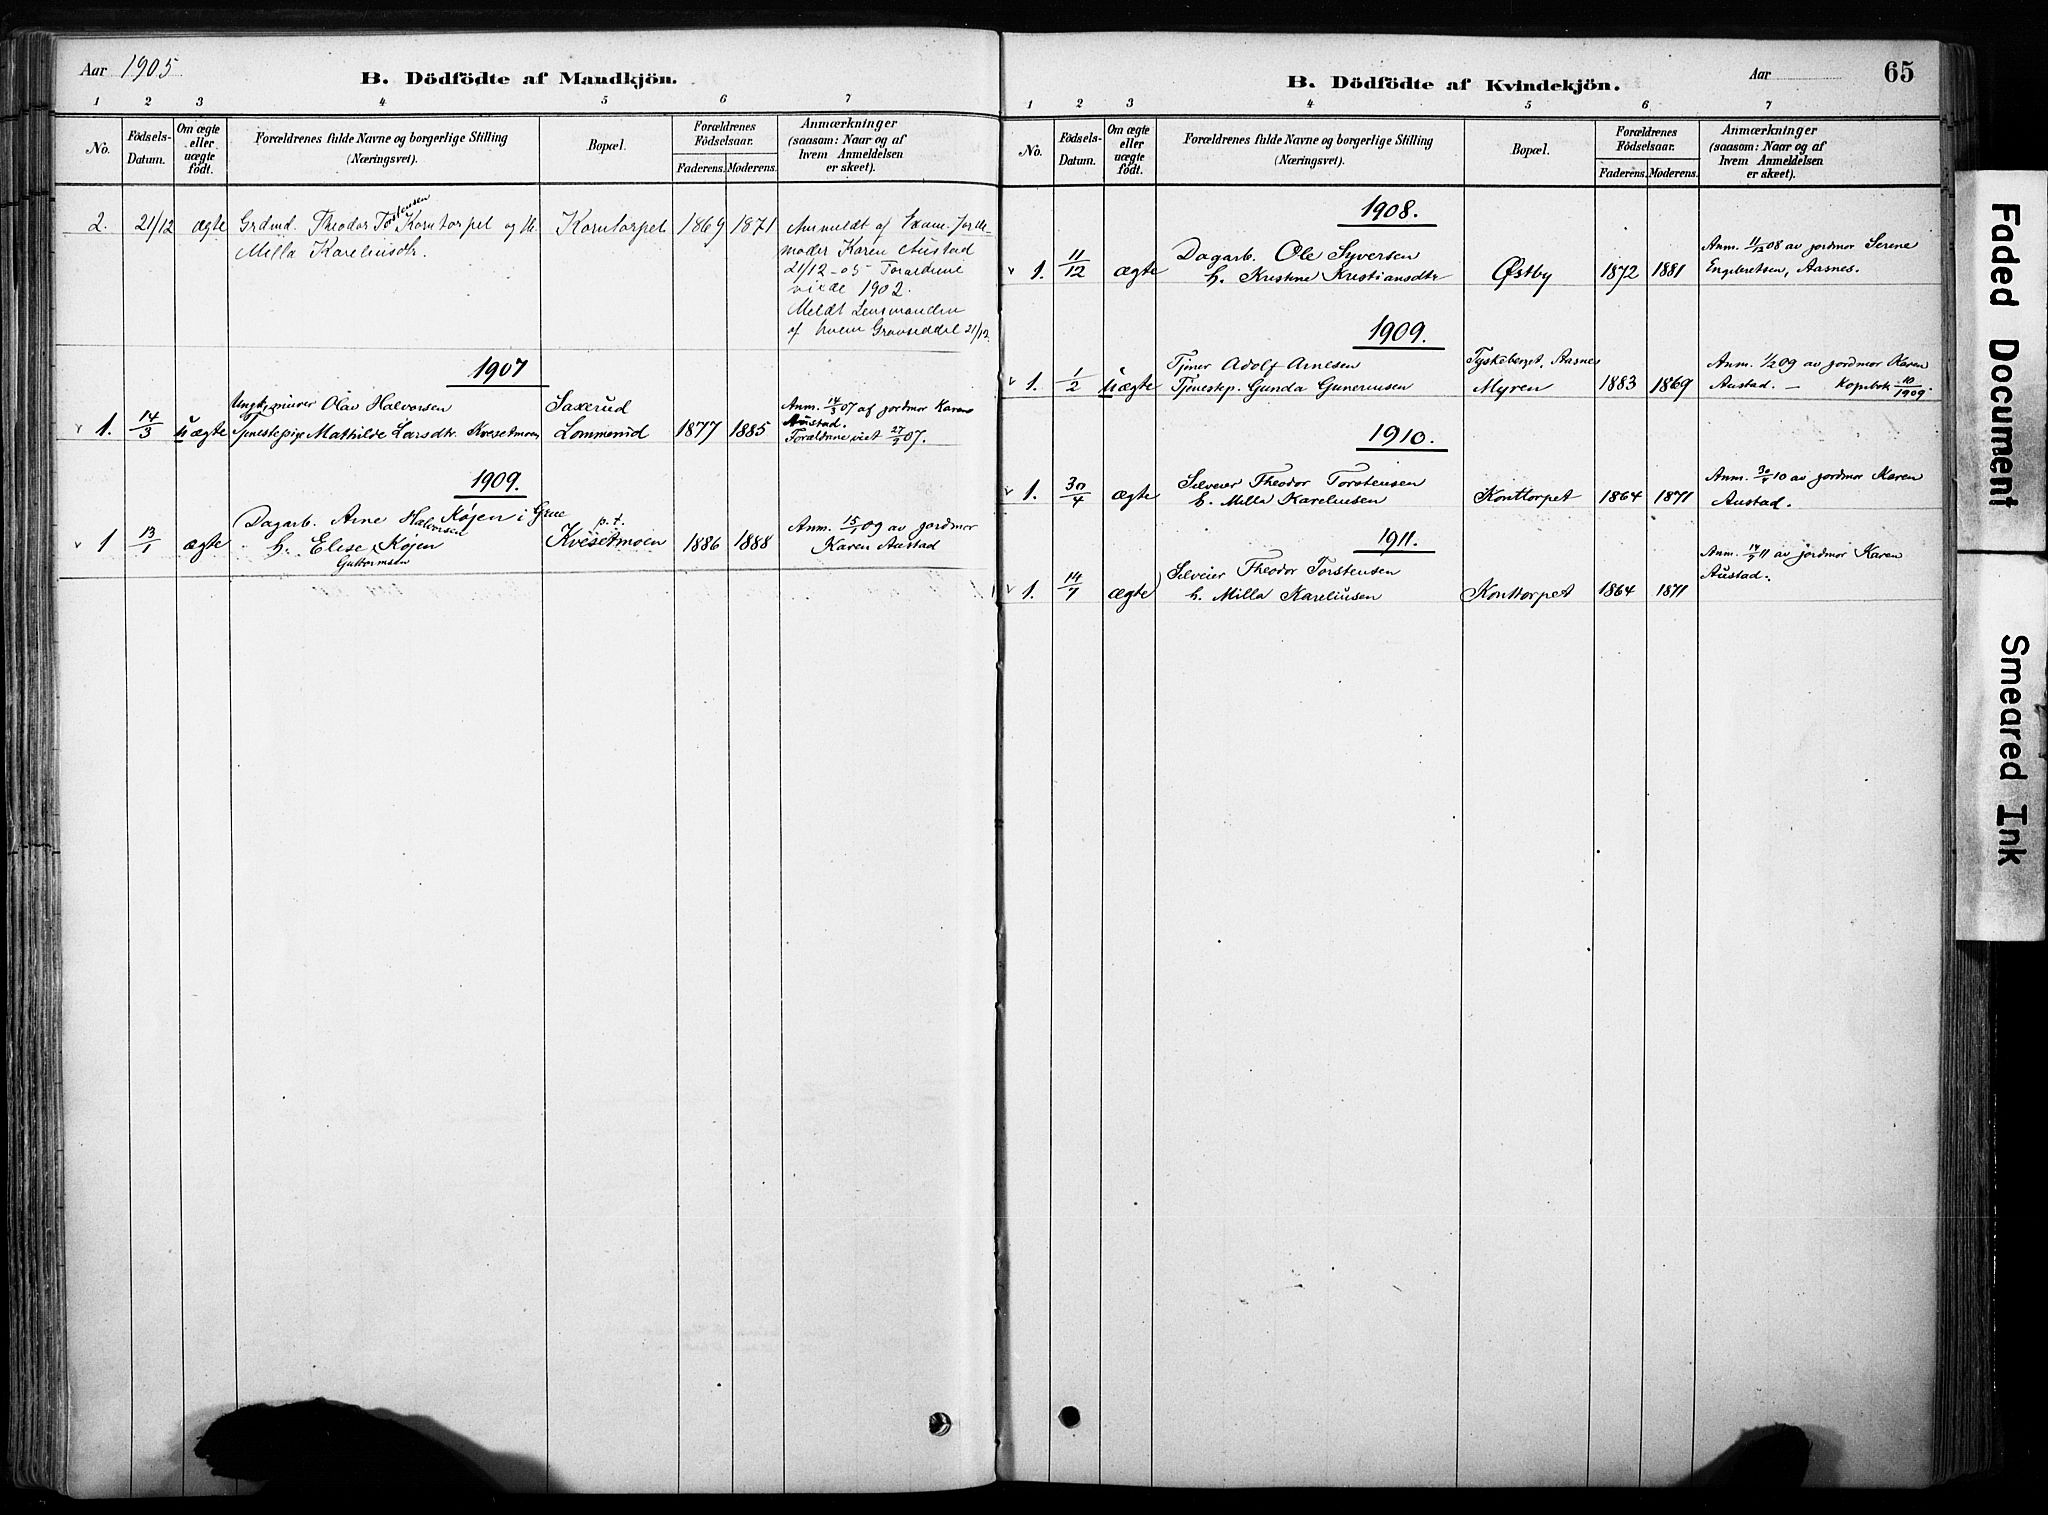 Aar 1905
B. Dödfödte af Mandkjön.
1 2 3 4 5 6 7
No.
Födsels-Datum.
Om ægte eller uægte födt.
Forældrenes fulde Navne og borgerlige Stilling (Næringsvei).
Bopæl.
Forældrenes Födselsaar.
Faderens. Moderens.
Anmærkninger (saasom: Naar og af hvem Anmeldelsen er skeet).
2. 21/12 ægte Grdmd. Theodor Torstensen Korntorpet og H. Korntorpet 1869 1871 Anmeldt af Exam. Jorde-
Milla Kareliusdtr. moder Karen Austad
21/12-05 Forældrene
viede 1902.
Meldt Lensmanden
af hvem Gravseddel 21/12.
1907
Ungk. murer Olav Halvorsen Saxerud Anm. 14/3 07 af jordmor Karen
1. 14/3 uægte Tjenestepige Mathilde Larsdtr. Kvesetmoen Lommerud 1877 1885 Austad.
Forældrene viet 27/3 07.
1909.
Dagarb. Arne Halvorsen Køjen i Grue p.t. Anm. 15/1 09 av jordmor
1 13/1 ægte h. Elise Guttormsen Køjen Kvesetmoen 1886 1888 Karen Austad
B. Dödfödte af Kvindekjön.
Aar
65
1 2 3 4 5 6 7
No.
Födsels-Datum.
Om ægte eller uægte födt.
Forældrenes fulde Navne og borgerlige Stilling (Næringsvei).
Bopæl.
Forældrenes Födselsaar.
Faderens. Moderens.
Anmærkninger (saasom: Naar og af hvem Anmeldelsen er skeet).
1908.
Dagarb. Ole Syversen Anm. 11/12 08 av jordmor Serene
1. 11/12 ægte h. Kristine Kristiansdtr Østby 1872 1881 Engebretsen, Aasnes.
1909.
Tjener Adolf Arnesen Tyskeberget, Aasnes Anm. 1/2 09 av jordmor Karen
1. 1/2 uægte Tjenestep. Gunda Gunerıusen Myren 1883 1869 Austad. — Kopibok 10/1909.
1910.
Selveier Theodor Torstensen Anm. 30/4 10 av jordmor Karen
1. 30/4 ægte h. Milla Kareliusen Konttorpet 1864 1871 Austad.
1911.
Selveier Theodor Torstensen Anm. 14/7 11 av jordmor Karen
1. 14/7 ægte h. Milla Kareliusen Konttorpet 1864 1871 Austad.
Faded Document
Smeared Ink